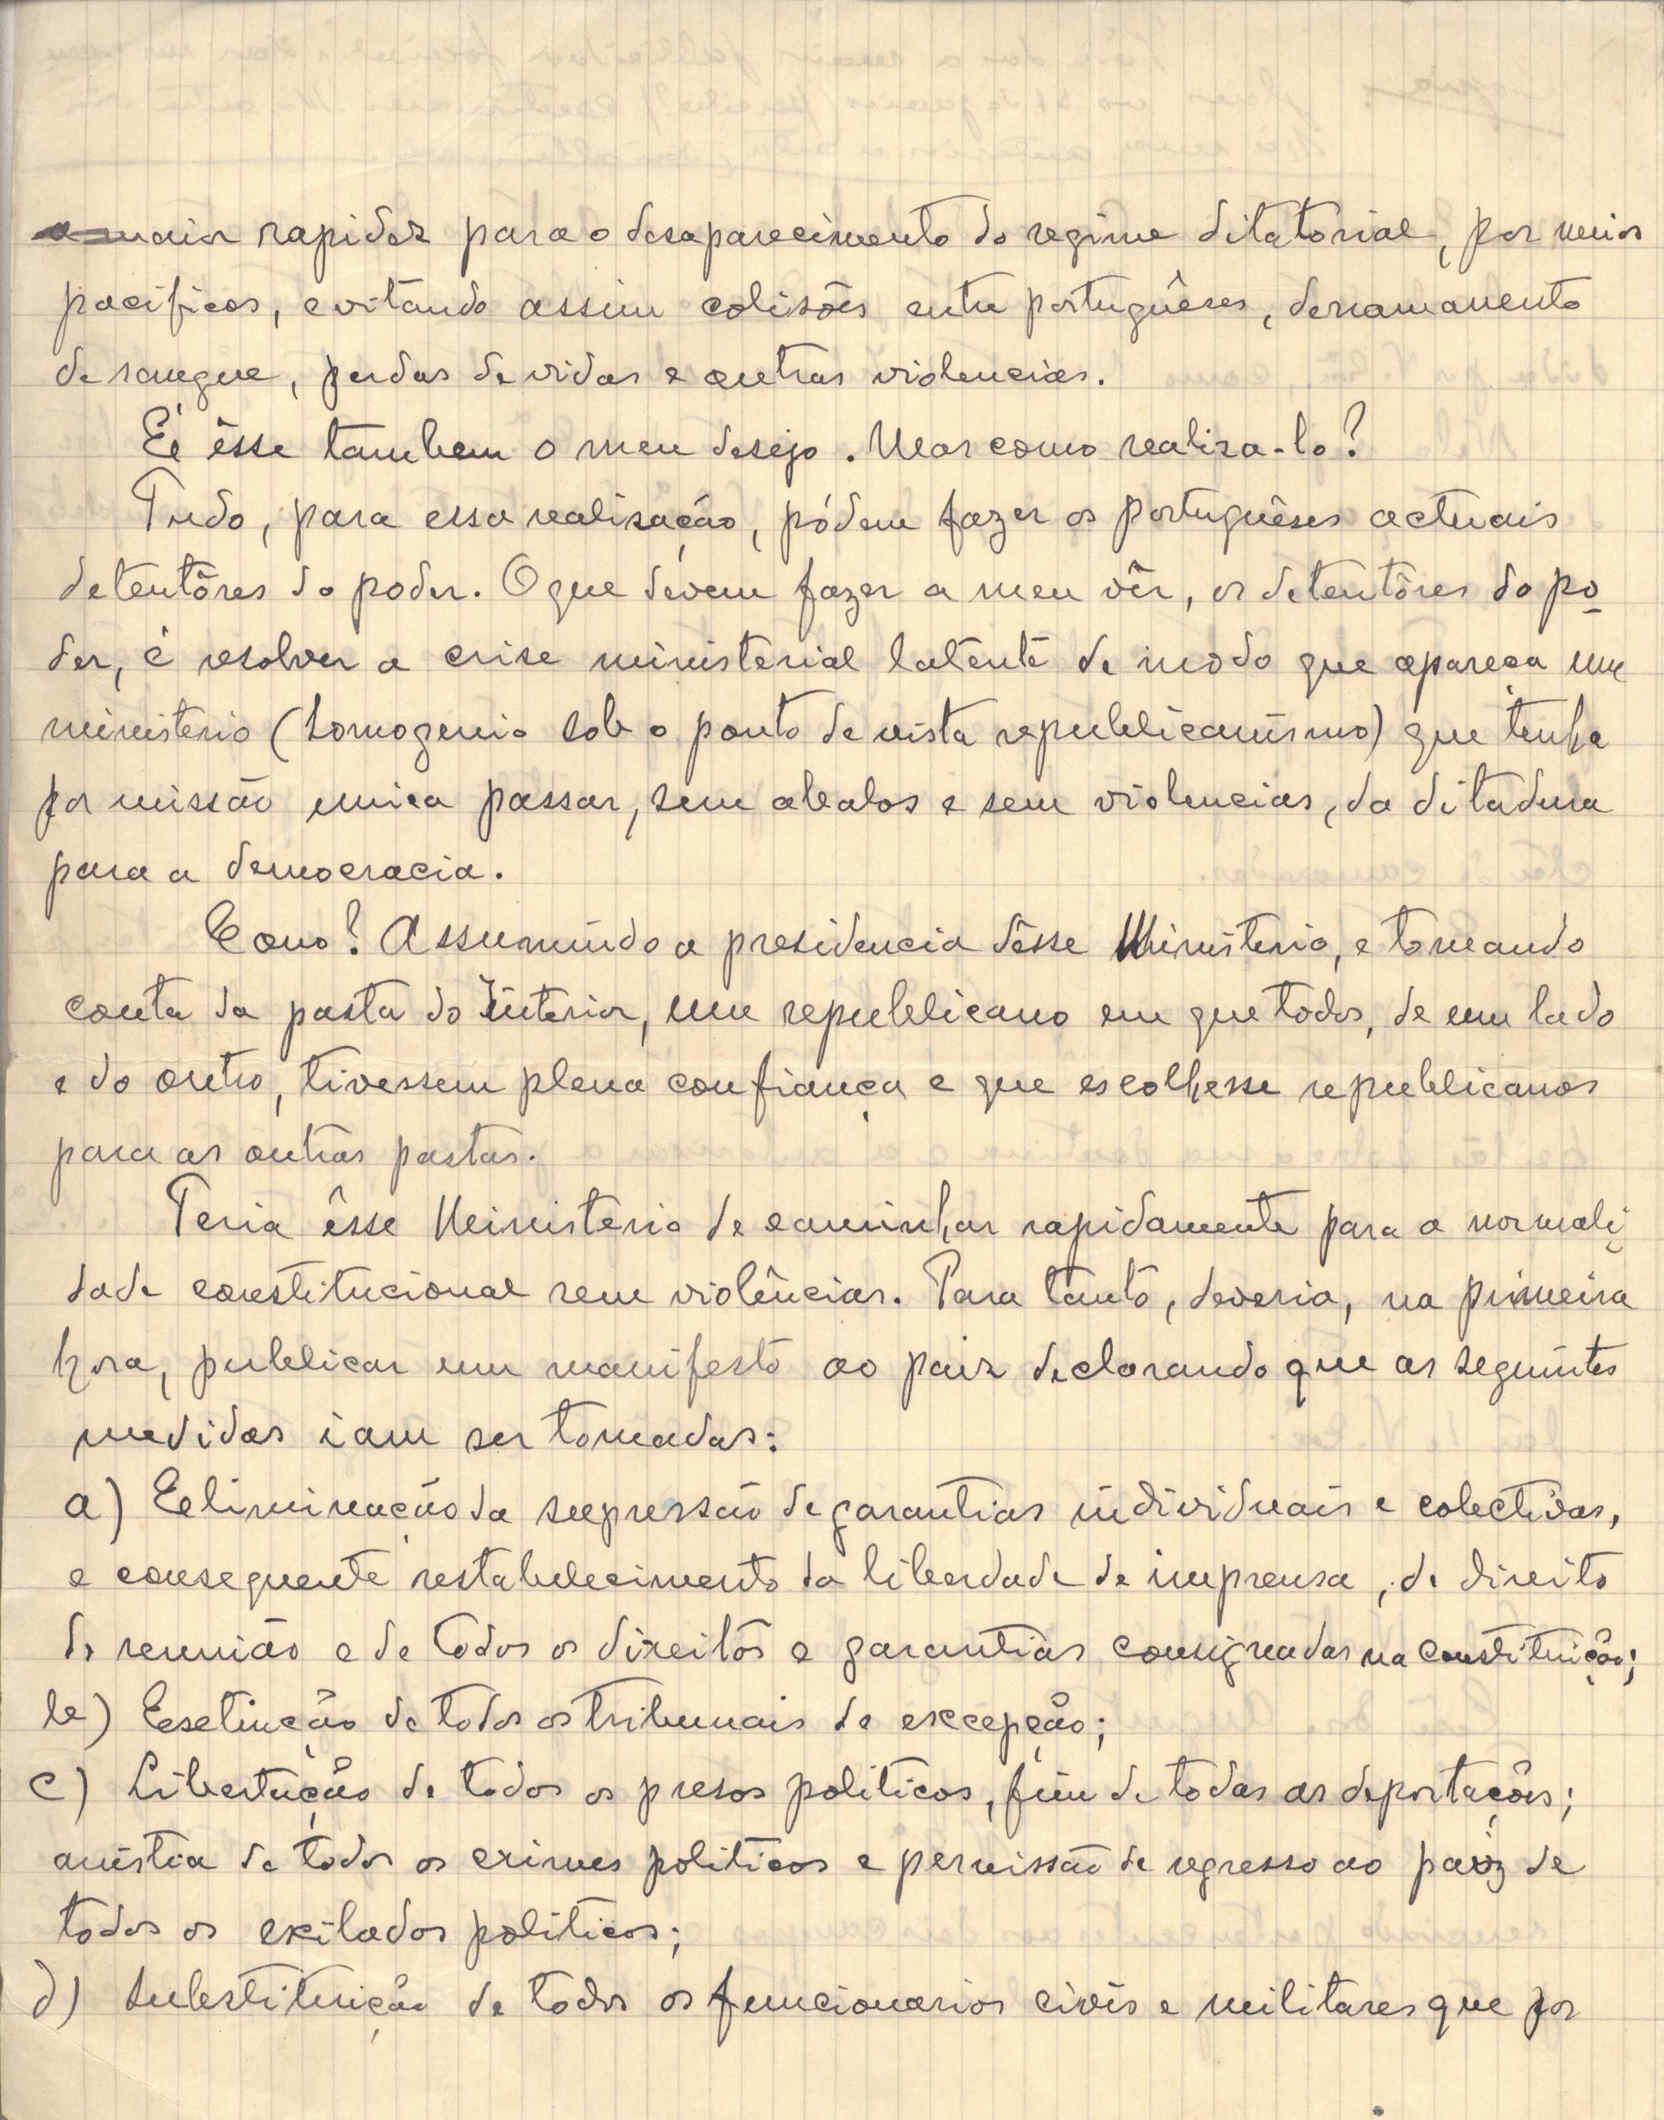 a maior rapidez para o desaparecimento do regime ditatorial, por meios
pacificos, evitando assim colisões entre portuguêses, derramamento
de sangue, perdas de vidas e outras violencias.
É êsse tambem o meu desejo. Mas como realisa-lo?
Tudo, para essa realisação, pódem fazer os portuguêses actuais
detentôres do poder. O que dévem fazer a meu vêr, os detentôres do po
der, é resolver a crise ministerial latente de modo que apareça um
ministerio (homogenio sob o ponto de vista republicanismo) que tenha
por missão unica passar, sem abalos e sem violencias, da ditadura
para a democracia.
Como? Assumindo a presidencia dêsse Ministerio, e tomando
conta da pasta do Interior, um republicano em que todos, de um lado
e do outro, tivessem plena confiança e que escolhesse republicanos
para as outras pastas.
Teria êsse Ministerio de caminhar rapidamente para a normali
dade constitucional sem violências. Para tanto, deveria, na primeira
hora, publicar um manifesto ao paiz declarando que as seguintes
medidas iam ser tomadas:
a) Eliminação da supressão de garantias individuais e colectivas,
e consequente restabelecimento da liberdade de imprensa, do direito
de reunião e de todos os direitos e garantias consignadas na Constituição;
b) Exstinção de todos os tribunais de excepção;
c) Libertação de todos os presos politicos, fim de todas as deportações;
amistia de todos os crimes politicos e permissão de regresso ao paiz de
todos os exilados politicos;
d) Substituição de todos os funcionarios civis e militares que por